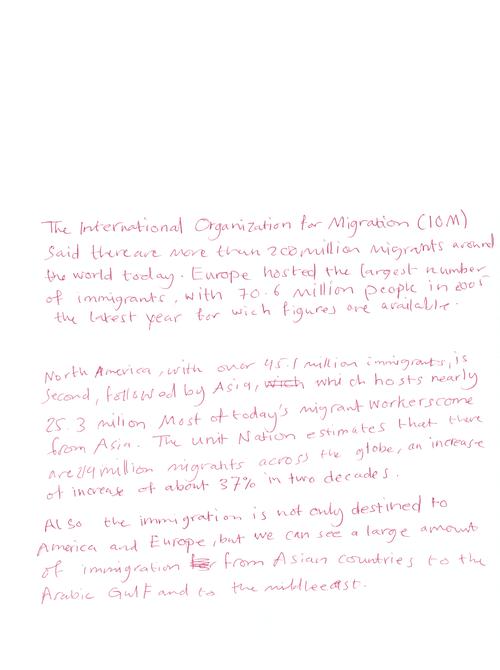 The International Organization for Migration (IOM)
Said there are more than 200 million migrants around
the world today. Europe hosted the largest number
of immigrants, with 70.6 million people in 2005
the latest year for wich figures are available.
North America, with over 45.1 million immigrants, is
Second, followed by Asia, which hosts nearly
25.3 milion Most of today's migrant workers come
from Asia. The unit Nation estimates that there
are 214 million migrants across the globe, an increase
of increase of about 37% in two decades.
Also the immigration is not only destined to
America and Europe, but we can see a large amount
of immigration from Asian countries to the
Arabic Gulf and to the middleeast.